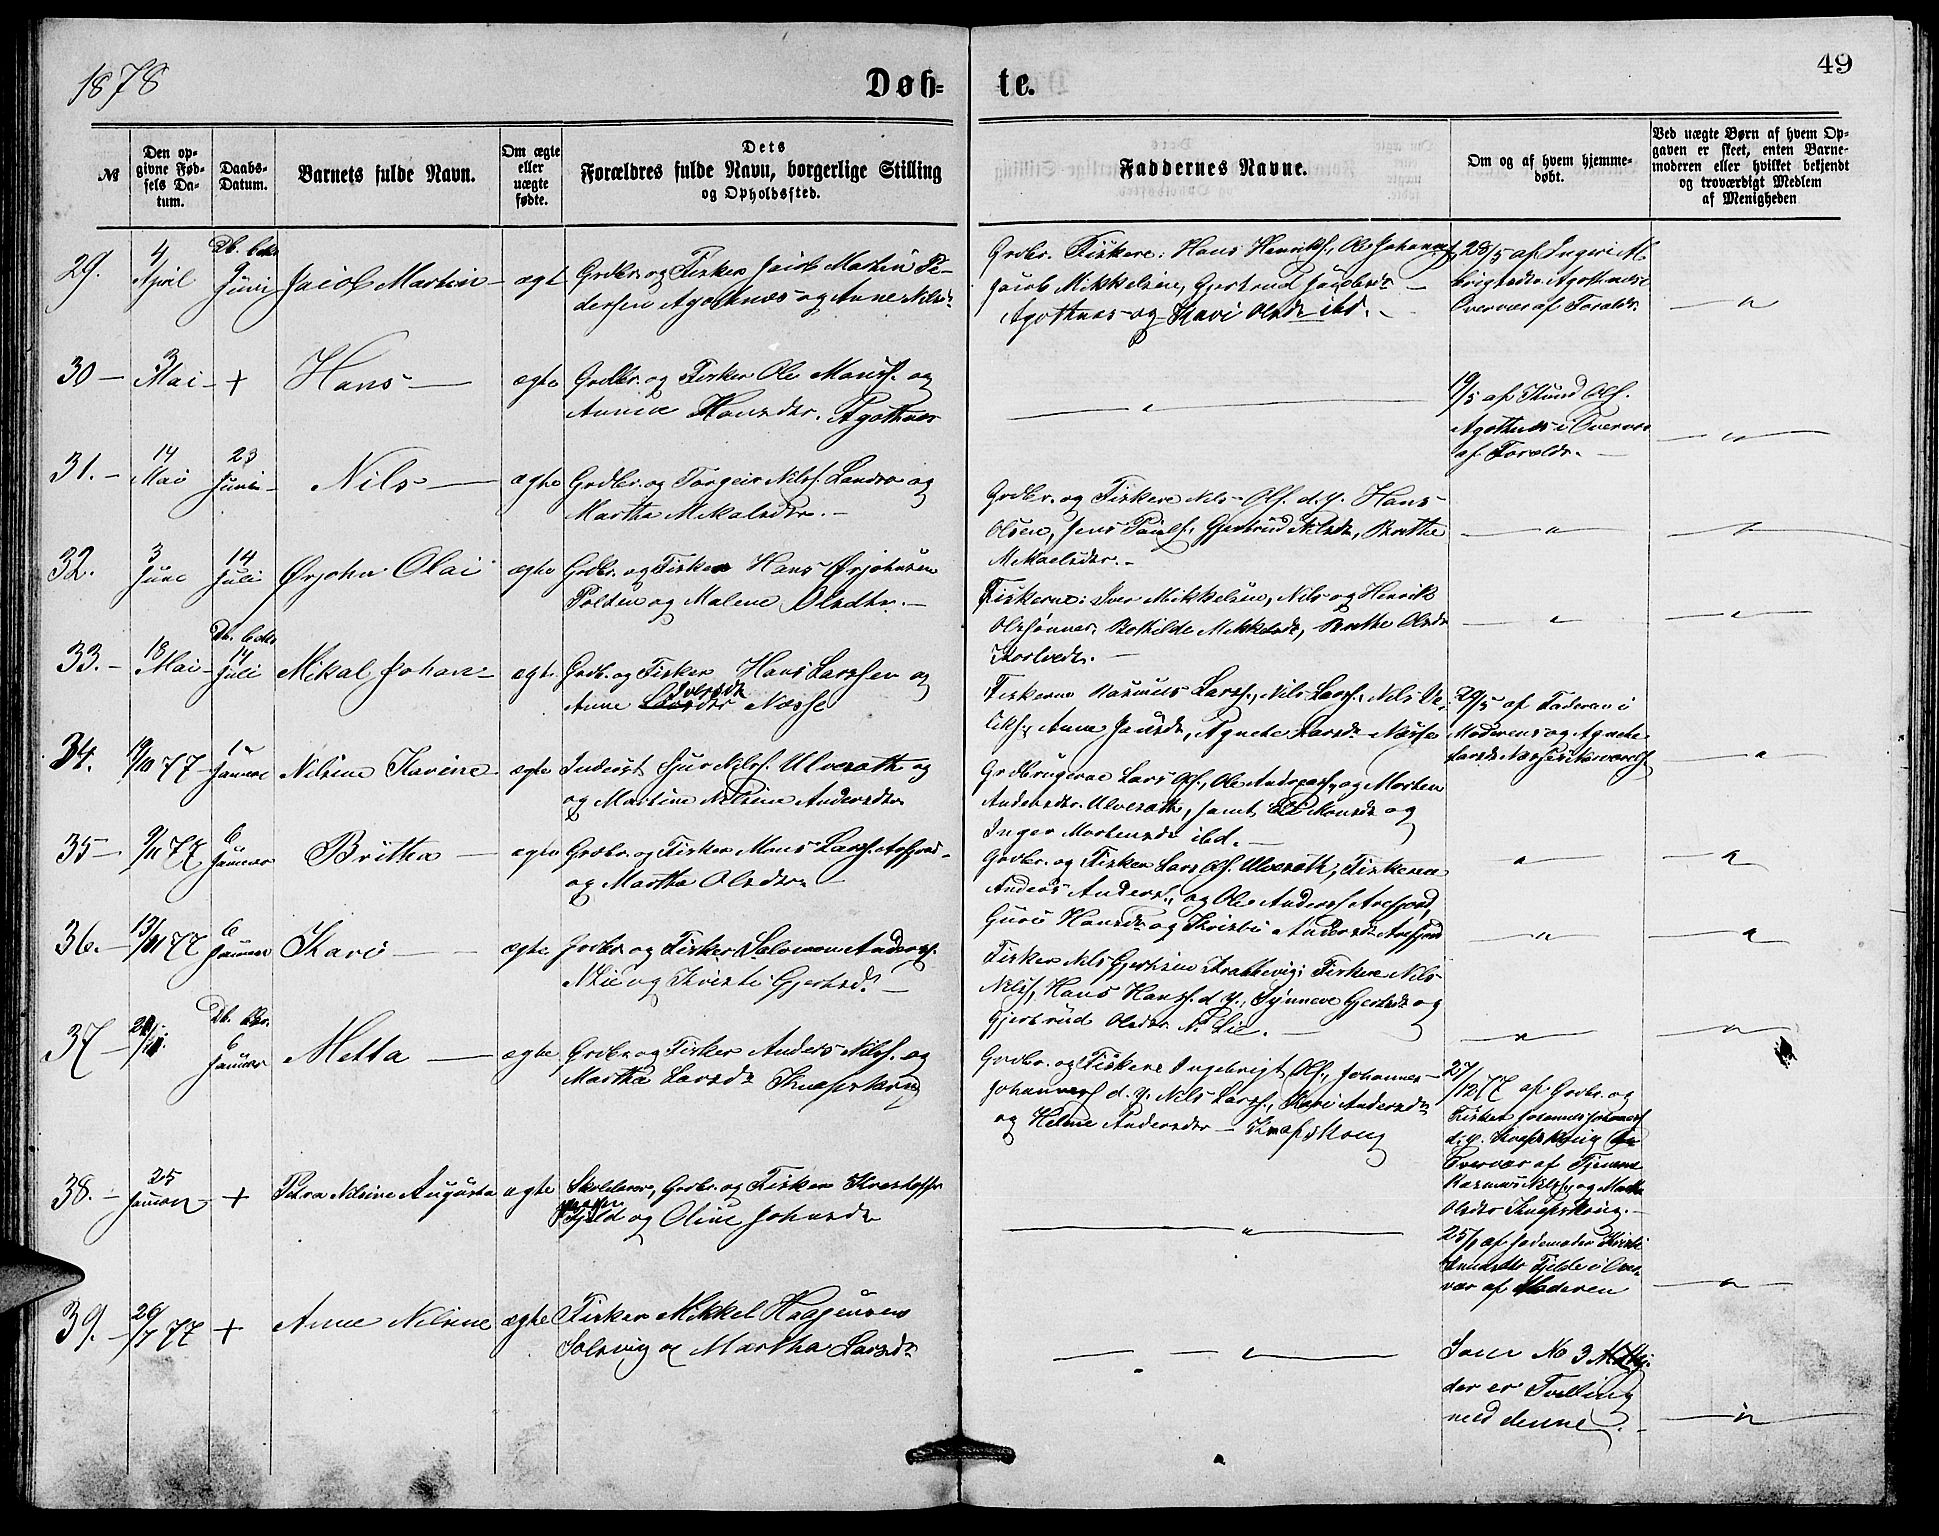 1878
Døb-
te.
49
№
Den op-
givne Fød-
sels Da-
tum.
Daabs-
Datum.
Barnets fulde Navn.
Om ægte
eller
uægte
fødte.
Dets
Forældres fulde Navn, borgerlige Stilling
og Opholdssted.
Faddernes Navne.
Om og af hvem hjemme-
døbt.
Ved uægte Børn af hvem Op-
gaven er skeet, enten Barne-
moderen eller hvilket bekjendt
og troværdigt Medlem
af Menigheden
29.
4
April
Juni
Jacob Martin
ægt
Grdbr. og Fisker Jacob Martin Pe-
dersen Agotnæs og Anne Nilsdr
Grdbr. Fiskere: Hans Henriks., Ole Johanness.
Jacob Mikkelsen, Gjertrud Jacobsdr
Agotnæs og Kari Olsdr ibd.
28/5 af Ingeri
Agotnæs i
Overvær af Forældr.
30
3
Mai
+
Hans
ægte
Grdbr. og Fisker Ole Monss. og
Anna Hansdr. Agotnæs
19/5 af Knud Ols.
Agotnæs i Overvær
af Forældr.
31.
14
Mai
23
Juni
Nils
ægte
Grdbr. og Torgeir Nilss. Landro og
Martha Mikalsdtr.
Grdbr. og Fiskere Nils Ols. d. y. Hans
Olsen, Jens Pauls. Gjertrud Nilsdr, Brethe
Mikaelsdr.
32.
3
June
14
Juli
Ørjohn Olai
ægte
Grdbr. og Fisker Hans Ørjohnsen
Polden og Malene Olsdtr.
Fiskerne: Iver Mikkelsen, Nils og Henrik
Olssønner, Bothilde Mikkelsdr, Brethe Olsdr
33.
18
Mai
14
Juli
Mikal Johan
ægte
Grdb. og Fisker Hans Larssen og
Anne Iversdr Næsse
Fiskerne Rasmus Larss., Nils Larss., Nils
Anne Jansdr, Agnete Larsdr Næsse
29/5 af Faderen i
Moderens og Agnete
Larsdr Næsses Nærværelse
34.
19/10 77
1
Januar
Nilsine Karine
ægte
Inderst Sjur Nilss. Ulverath og
og Martine Nilsine Andersdr
Grdbrugerne Lars Ols., Ole Andreass. og Morten
Andersdr. Ulverath, samt Eli Monsdr og
Inger Mortensdr ibd.
35
9/11 77
6
Januar
Britha
ægte
Grdbr. og Fisker Mons Larss. Arefjord
og Martha Olsdr.
Grdbr. og Fisker Lars Ols. Ulverath; Fiskerne
Anders Anderss., og Ole Anderss. Arefjord,
Guro Hansdr og Kristi Andersdr Arefjord
36.
13/11 77
6
Januar
Kari
ægte
Grdbr. og Fisker Salomon Anders.
N. Lie og Kristi Gjertsdr
Fisker Nils Gjertsen Krabbevig; Fiskere Nils
Nilss., Hans Hanss. d. y., Synneve Gjertsdr og
Gjertrud Olsdr. N. Lie.
37
6
Januar
Metta
ægte
Grdbr. og Fisker Anders Nilss. og
Martha Larsdr Knapskoug
Grdbr. og Fiskere Ingebrigt Ols., Johannes
Johanness. d. y. Nils Larss., Kari Andersdr
og Helene Andersdr Knapskoug
27/12 77 af Grdbr. og
Fisker Johannes Johanness.
d. y. Knapskoug i
Overvær af
Rasmus Nilss. og Martha
Olsdr Knapskoug.
38.
25
Januar
+
Petra Nilsine Augusta
ægte
Skolelærer, Grdbr. og Fisker Kristoffer
Fjeld og Oline Johnsdr
25/1 af Jordemoder Kristi
Fjelde i Over-
vær af Moderen
39.
26/7 77
+
Anne Nilsine
ægte
Fisker Mikkel Haagensen
Solsvig og Martha Larsdr
Som No 3
der er Tvilling
med denne.